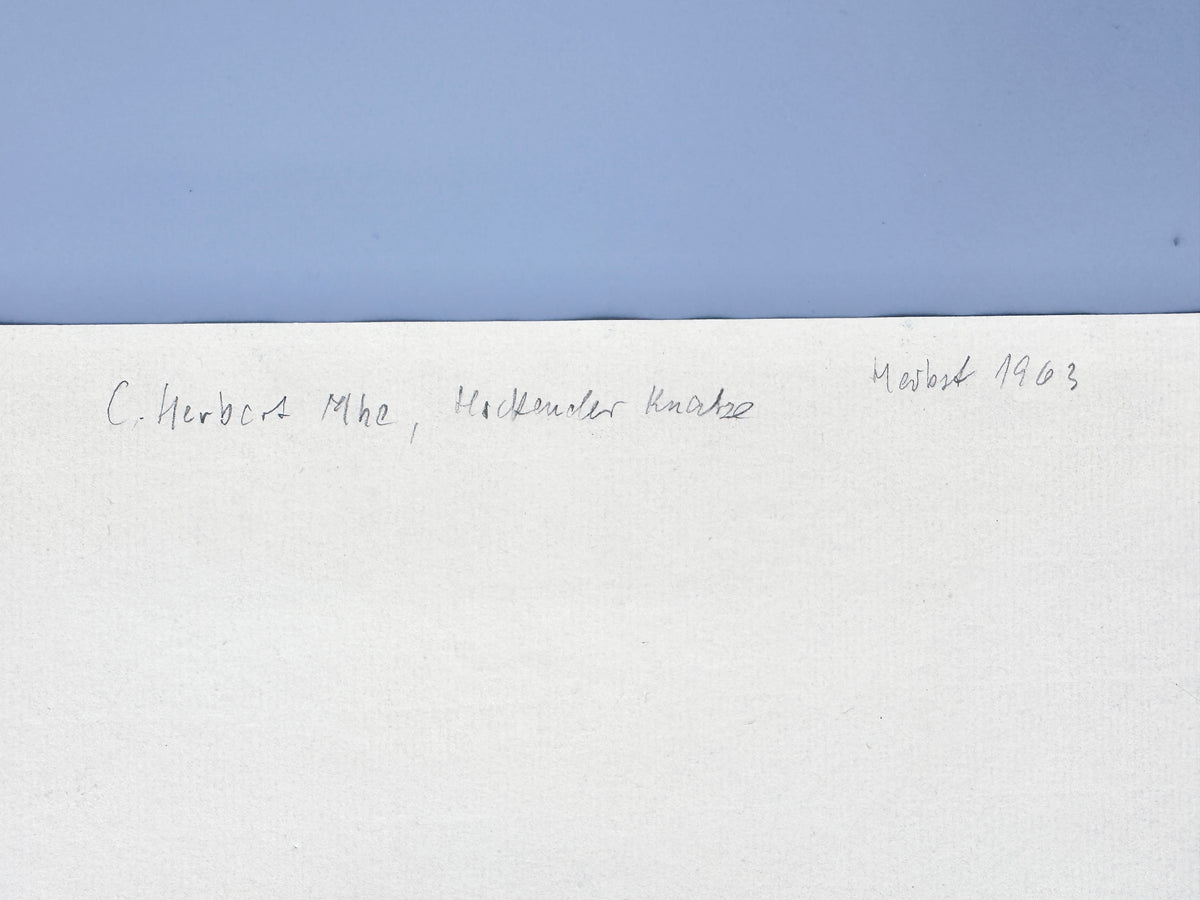 C. Herbert Mhe, Hockender Knabe
Herbst 1963